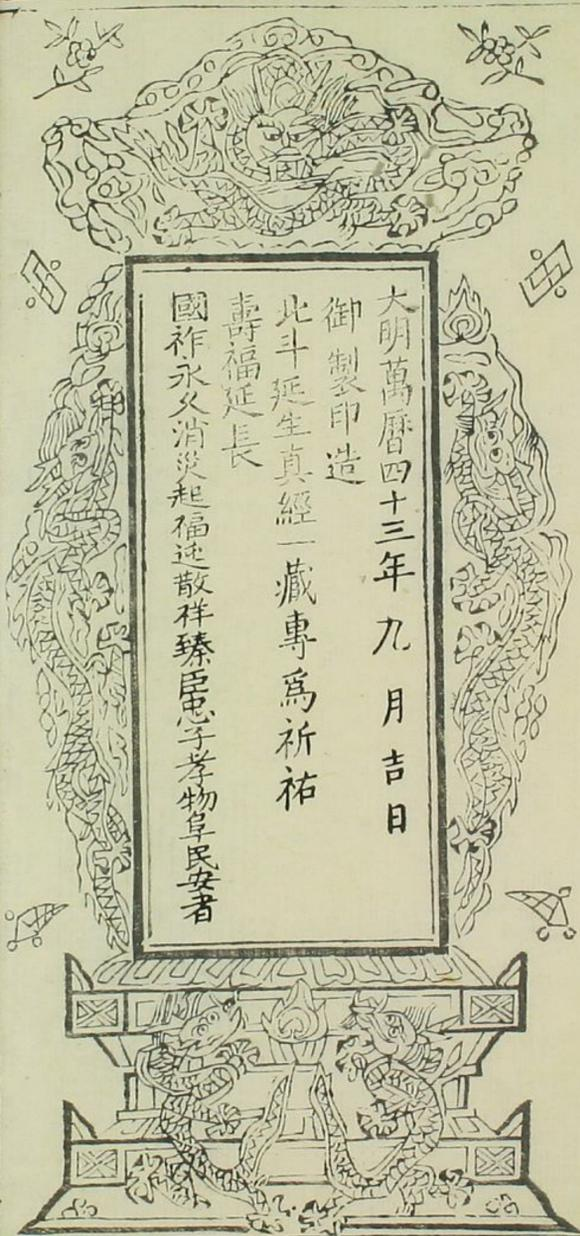 大明萬曆四十三年九月吉日
御製印造
北斗延生真經一藏專爲祈祐
壽福延長
國祚永久消災起福迯散祥臻臣忠子孝物阜民安者